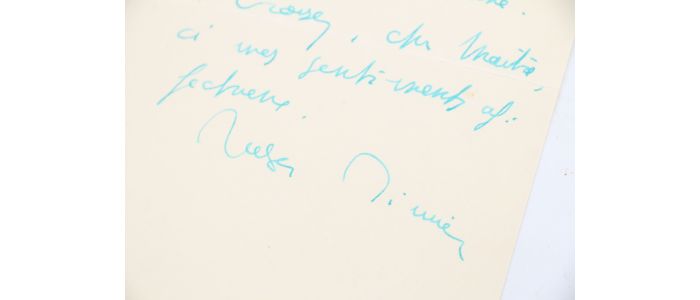 Croyez, cher Maître,
à mes sentiments af-
fectueux.
Roger Nimier